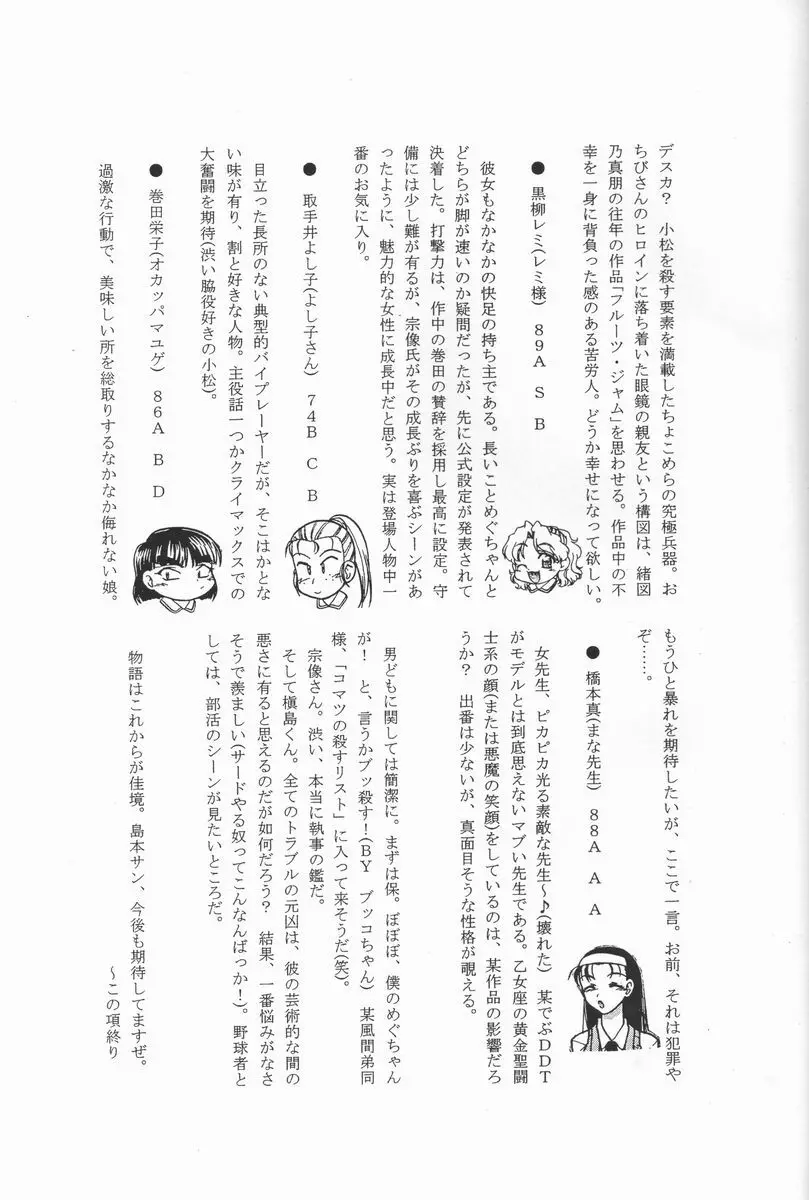 デスカ?　小松を殺す要素を満載したちょこめらの究極兵器。お
ちびさんのヒロインに落ち着いた眼鏡の親友という構図は、緒図
乃真朋の往年の作品「フルーツ・ジャム」を思わせる。作品中の不
幸を一身に背負った感のある苦労人。どうか幸せになって欲しい。
● 黒柳レミ(レミ様)　89A　S　B
彼女もなかなかの快足の持ち主である。長いことめぐちゃんと
どちらが脚が速いのか疑問だったが、先に公式設定が発表されて
決着した。打撃力は、作中の巻田の賛辞を採用し最高に設定。守
備には少し難が有るが、宗像氏がその成長ぶりを喜ぶシーンがあ
ったように、魅力的な女性に成長中だと思う。実は登場人物中一
番のお気に入り。
● 取手井よし子(よし子さん)　74B　C　B
目立った長所のない典型的バイプレーヤーだが、そこはかとな
い味が有り、割と好きな人物。主役話一つかクライマックスでの
大奮闘を期待(渋い脇役好きの小松)。
● 巻田栄子(オカッパマユゲ)　86A　B　D
過激な行動で、美味しい所を総取りするなかなか侮れない娘。
もうひと暴れを期待したいが、ここで一言。お前、それは犯罪や
ぞ……。
● 橋本真(まな先生)　88A　A　A
女先生、ピカピカ光る素敵な先生～♪(壊れた)　某でぶDDT
がモデルとは到底思えないマブい先生である。乙女座の黄金聖闘
士系の顔(または悪魔の笑顔)をしているのは、某作品の影響だろ
うか?　出番は少ないが、真面目そうな性格が覗える。
男どもに関しては簡潔に。まずは保。ぼぼぼ、僕のめぐちゃん
が!　と、言うかブッ殺す!(BY　ブッコちゃん)　某風間弟同
様、「コマツの殺すリスト」に入って来そうだ(笑)。
宗像さん。渋い、本当に執事の鑑だ。
そして槇島くん。全てのトラブルの元凶は、彼の芸術的な間の
悪さに有ると思えるのだが如何だろう?　結果、一番悩みがなさ
そうで羨ましい(サードやる奴ってこんなんばっか!)。野球者と
しては、部活のシーンが見たいところだ。
物語はこれからが佳境。島本サン、今後も期待してますぜ。
～この項終り